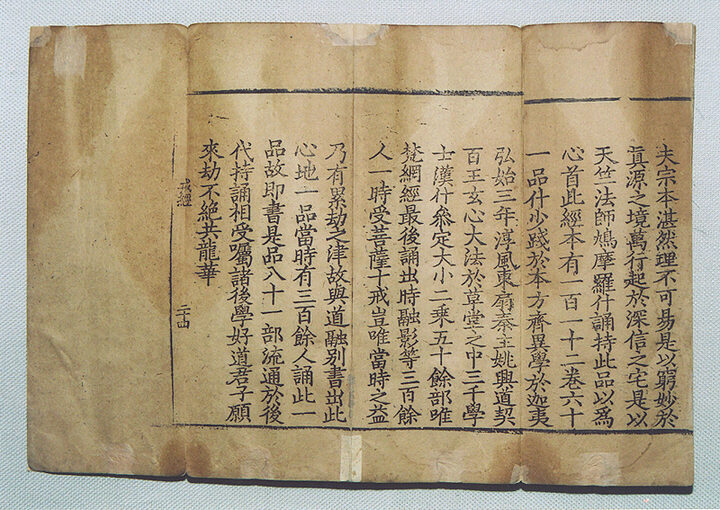 夫宗本湛然理不可易是以窮妙於
眞源之境萬行起於深信之宅是以
天竺法師鳩摩羅什誦持此品以爲
心首此經本有一百一十二卷六十
一品什少踐於本方齊異學於迦夷
弘始三年淳風東扇秦主姚興道契
百王玄心大法於草堂之中三千學
士漢什叅定大小二乘五十餘部唯
梵網經最後誦出時融影等三百餘
人一時受菩薩十戒豈唯當時之益
乃有累劫之津故與道融別書出此
心地一品當時有三百餘人誦此一
品故即書是品八十一部流通於後
代持誦相受囑諸後學好道君子願
來劫不絕共龍華
戒經 二十四